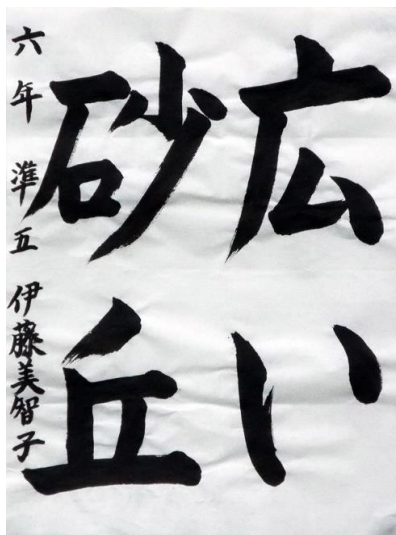 広い
砂丘
六年 準五 伊藤美智子